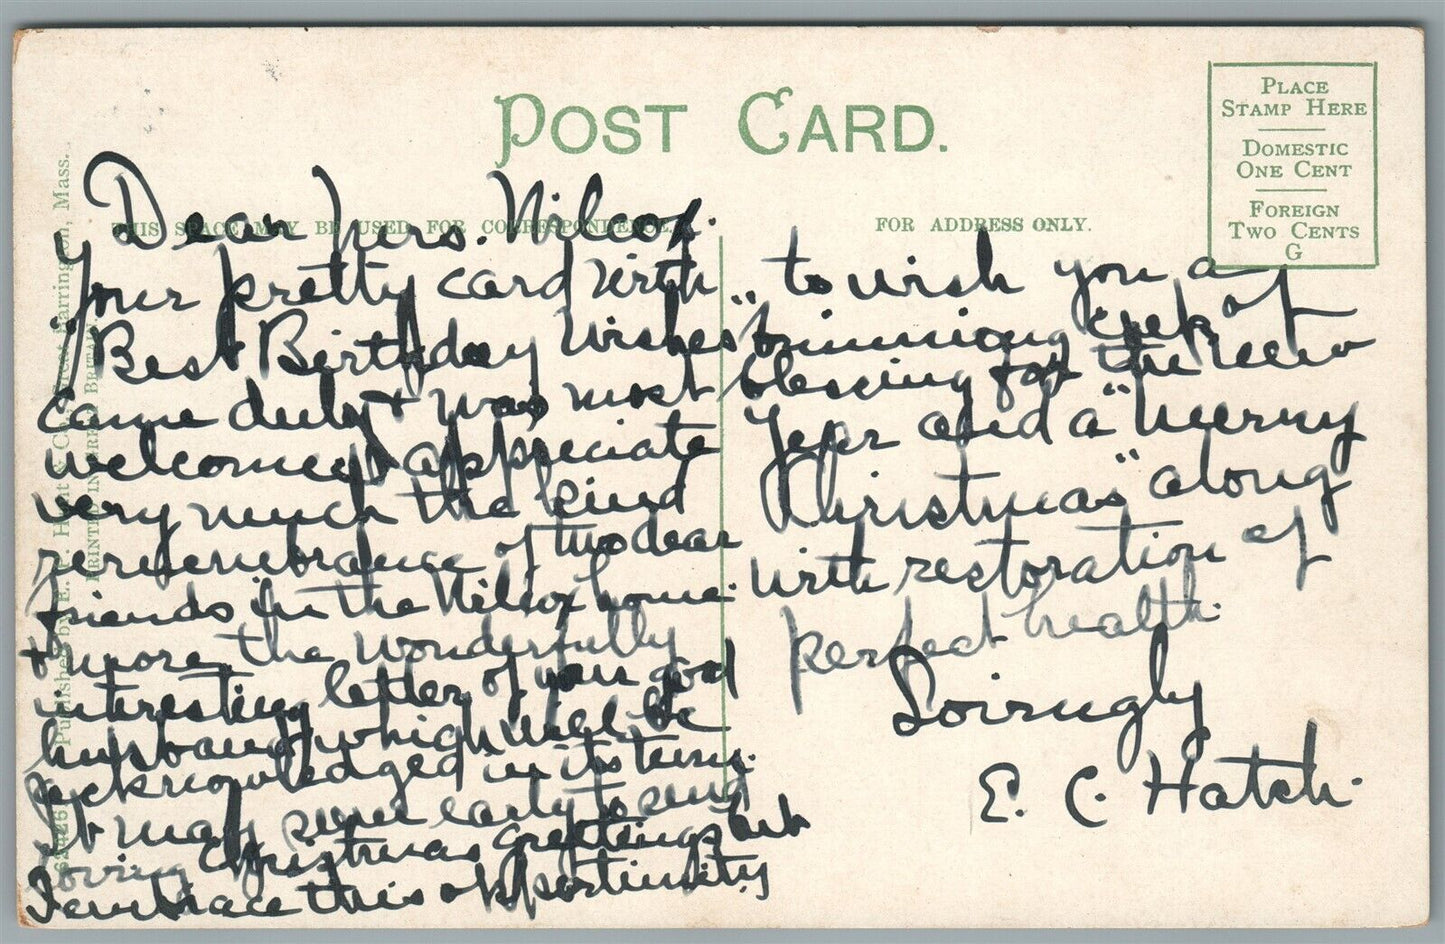 POST CARD.
PLACE
STAMP HERE
DOMESTIC
ONE CENT
FOREIGN
TWO CENTS
G
THIS SPACE MAY BE USED FOR CORRESPONDENCE.
FOR ADDRESS ONLY.
Dear Mrs. Wilcox.
Your pretty card with
"Best Birthday Wishes"
came duly & was most
welcome & appreciate
very much the kind
remembrance of two dear
friends in the Wilcox home.
& more, the wonderfully
interesting letter of your good
husband, which will be
acknowledged in its turn.
It may seem early to send
loving Christmas greetings but
I embrace this opportunity
to wish you a
brimming cup of
blessing for the new
Year and a "Merry
Christmas" along
with restoration of
perfect health.
Lovingly
E. C. Hatch.
Published by Great Barrington, Mass.
PRINTED IN BRITAIN